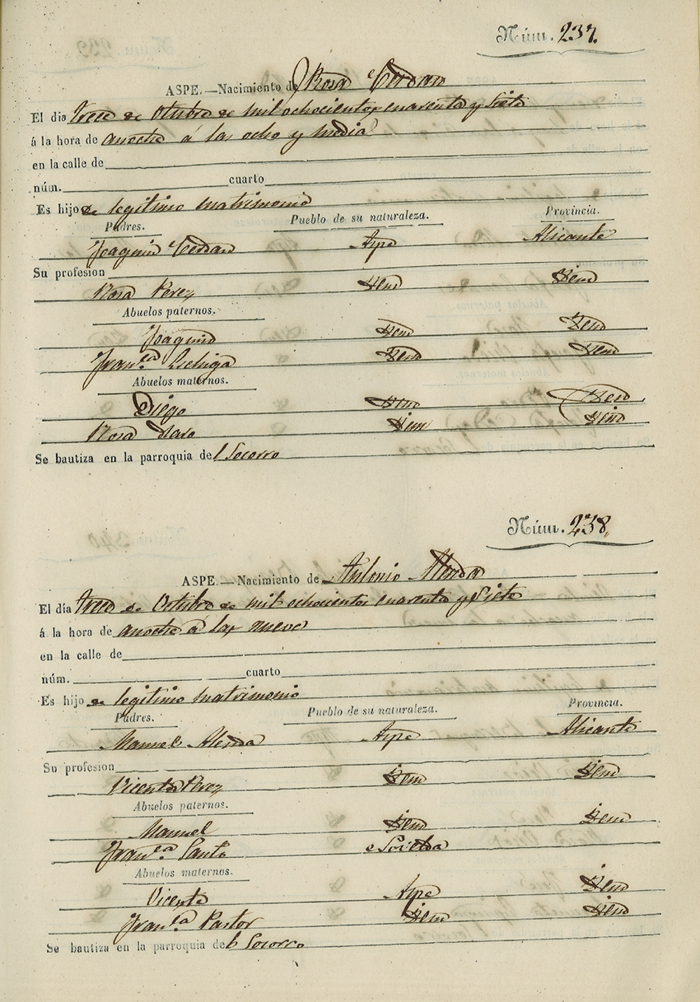 Núm. 237.
ASPE.—Nacimiento de Rosa Cerdan
El día trece de Octubre de mil ochocientos cuarenta y siete
á la hora de anoche á las ocho y media
en la calle de
núm. cuarto
Es hijo de legitimo matrimonio
Padres. Pueblo de su naturaleza. Provincia.
Joaquin Cerdan Aspe Alicante
Su profesion
Rosa Perez Idem Idem
Abuelos paternos.
Joaquin Idem Idem
Fran.ca Idem Idem
Abuelos maternos.
Diego Idem Idem
Rosa Idem Idem
Se bautiza en la parroquia del Socorro
Núm. 238.
ASPE.—Nacimiento de Antonio
El día trece de Octubre de mil ochocientos cuarenta y siete
á la hora de anoche á las nueve
en la calle de
núm. cuarto
Es hijo de legitimo matrimonio
Padres. Pueblo de su naturaleza. Provincia.
Manuel Aspe Alicante
Su profesion
Vicenta Perez Idem Idem
Abuelos paternos.
Manuel Idem Idem
Fran.ca
Abuelos maternos.
Vicente Aspe Idem
Fran.ca Pastor Idem Idem
Se bautiza en la parroquia del Socorro